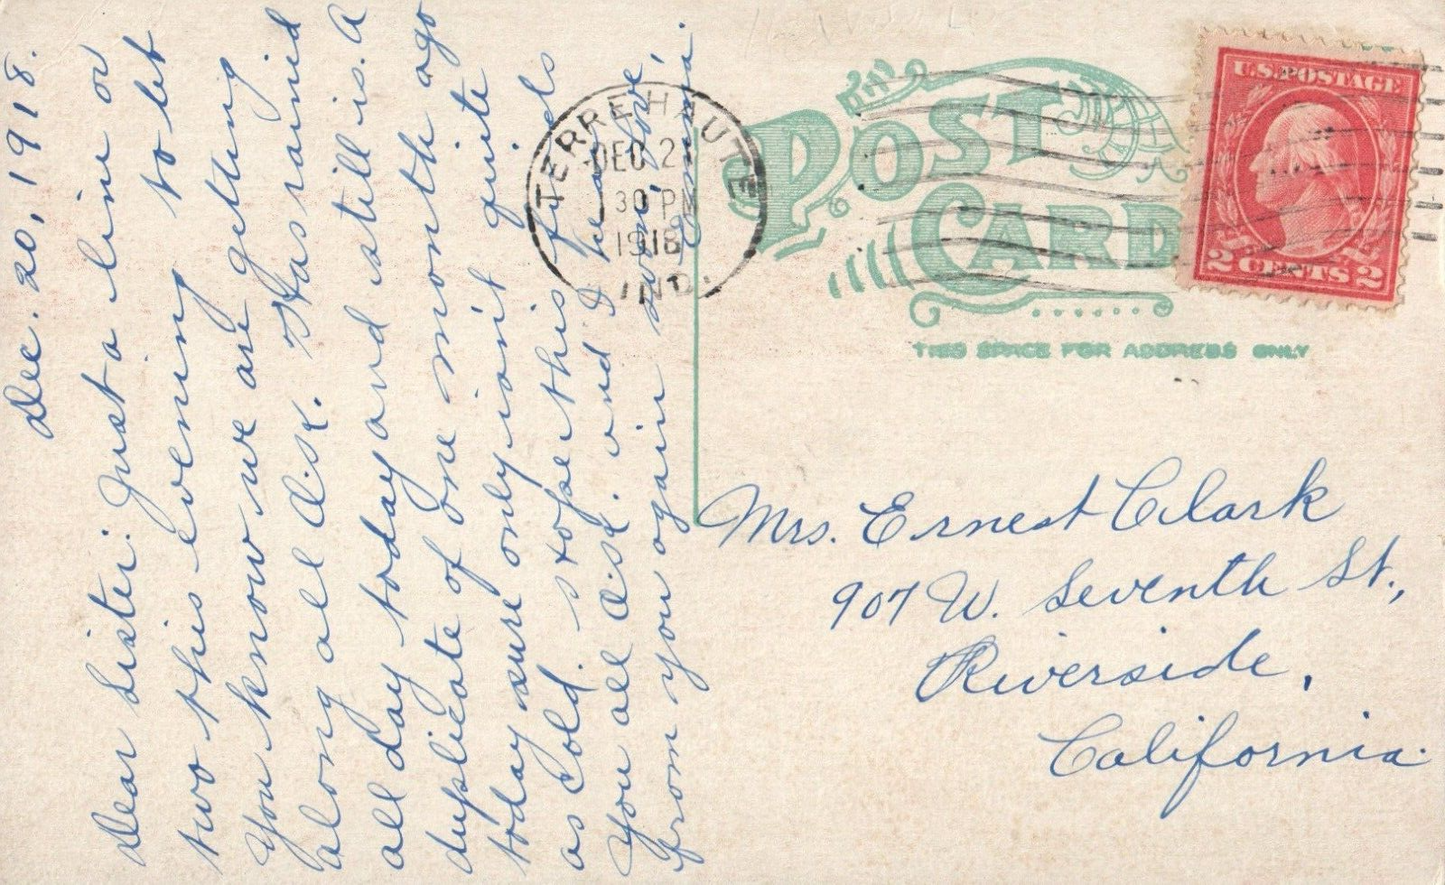 Dec. 20, 1918.
Dear Sister: Just a line or
two this evening to let
you know we are getting
along all O.K. Has rained
all day today and still is. A
duplicate of one month ago
today sure only isn't quite
as cold. I hope this finds
you all O.K. and I hear
from you again soon. Love,
Emma.
TERRE HAUTE
DEC 2
30 PM
1918
IND.
POST
CARD
U.S. POSTAGE
2 CENTS 2
THIS SPACE FOR ADDRESS ONLY
Mrs. Ernest Clark
907 W. Seventh St.,
Riverside,
California.